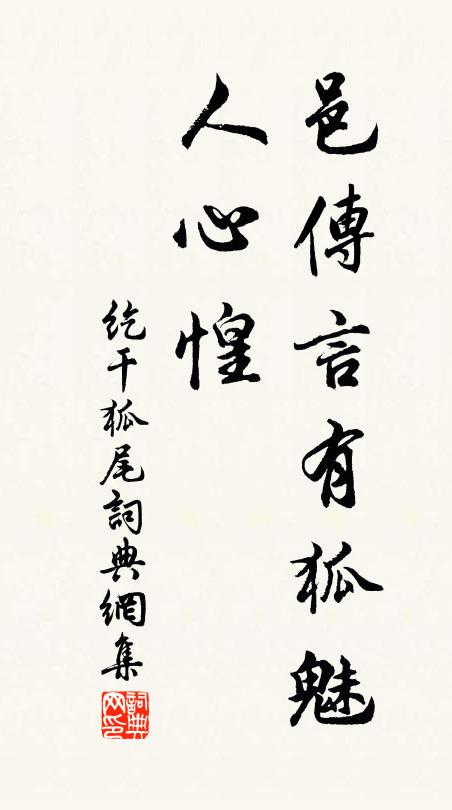 邑傳言有狐魅
人心惶
紇干狐尾詞典網集
詞典网印